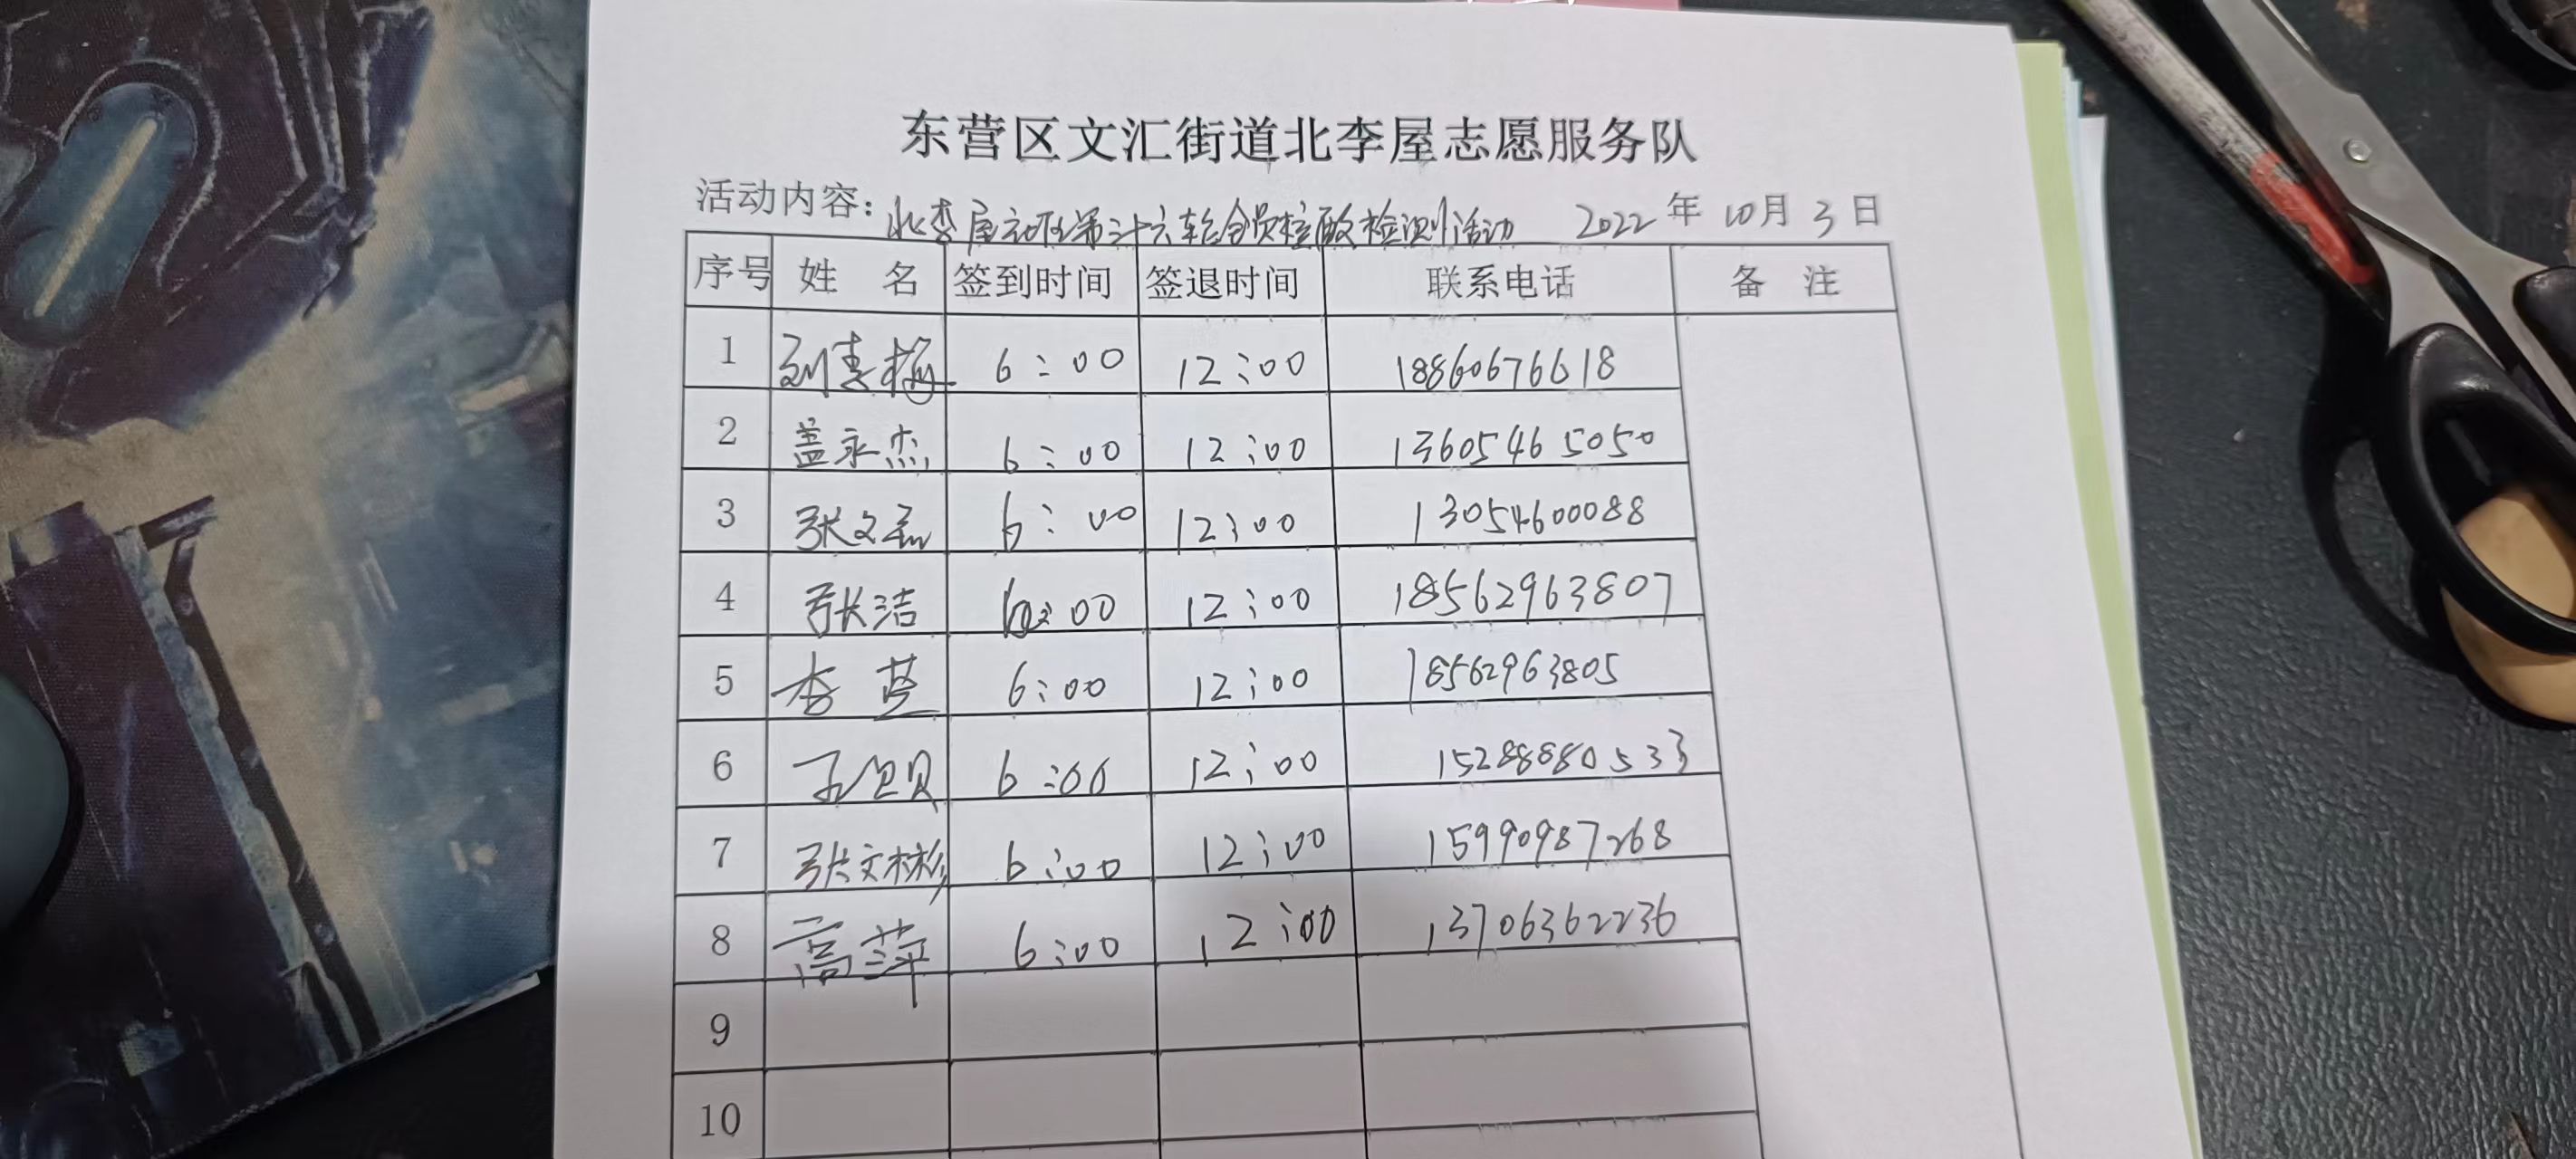 东营区文汇街道北李屋志愿服务队
活动内容：北李屋社区第三十六轮全员核酸检测活动 2022年10月3日
序号 姓 名 签到时间 签退时间 联系电话 备 注
1 刘春梅 6:00 12:00 18860676618
2 盖永杰 6:00 12:00 13605465050
3 张文磊 6:00 12:00 13054600088
4 张洁 6:00 12:00 18562963807
5 李 6:00 12:00 18562963805
6 贝 6:00 12:00 15288880533
7 张文彬 6:00 12:00 15990987268
8 高萍 6:00 12:00 13706362236
9
10